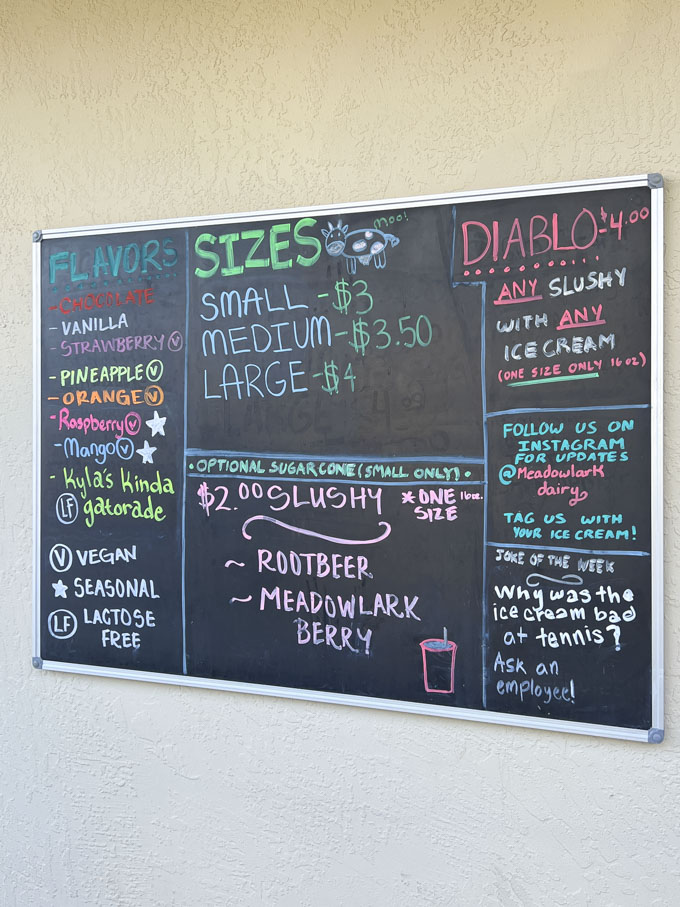 FLAVORS
- CHOCOLATE
- VANILLA
- STRAWBERRY V
- PINEAPPLE V
- ORANGE V
- Raspberry V ★
- Mango V ★
- Kyla's Kinda
LF gatorade
V VEGAN
★ SEASONAL
LF LACTOSE
FREE
SIZES
moo!
SMALL - $3
MEDIUM - $3.50
LARGE - $4
• OPTIONAL SUGAR CONE (SMALL ONLY) •
$2.00 SLUSHY
* ONE 16oz.
SIZE
~ ROOTBEER
~ MEADOWLARK
BERRY
DIABLO - $4.00
ANY SLUSHY
WITH ANY
ICE CREAM
(ONE SIZE ONLY 16 oz)
FOLLOW US ON
INSTAGRAM
FOR UPDATES
@Meadowlark
dairy
TAG US WITH
YOUR ICE CREAM!
JOKE OF THE WEEK
Why was the
ice cream bad
at tennis?
Ask an
employee!